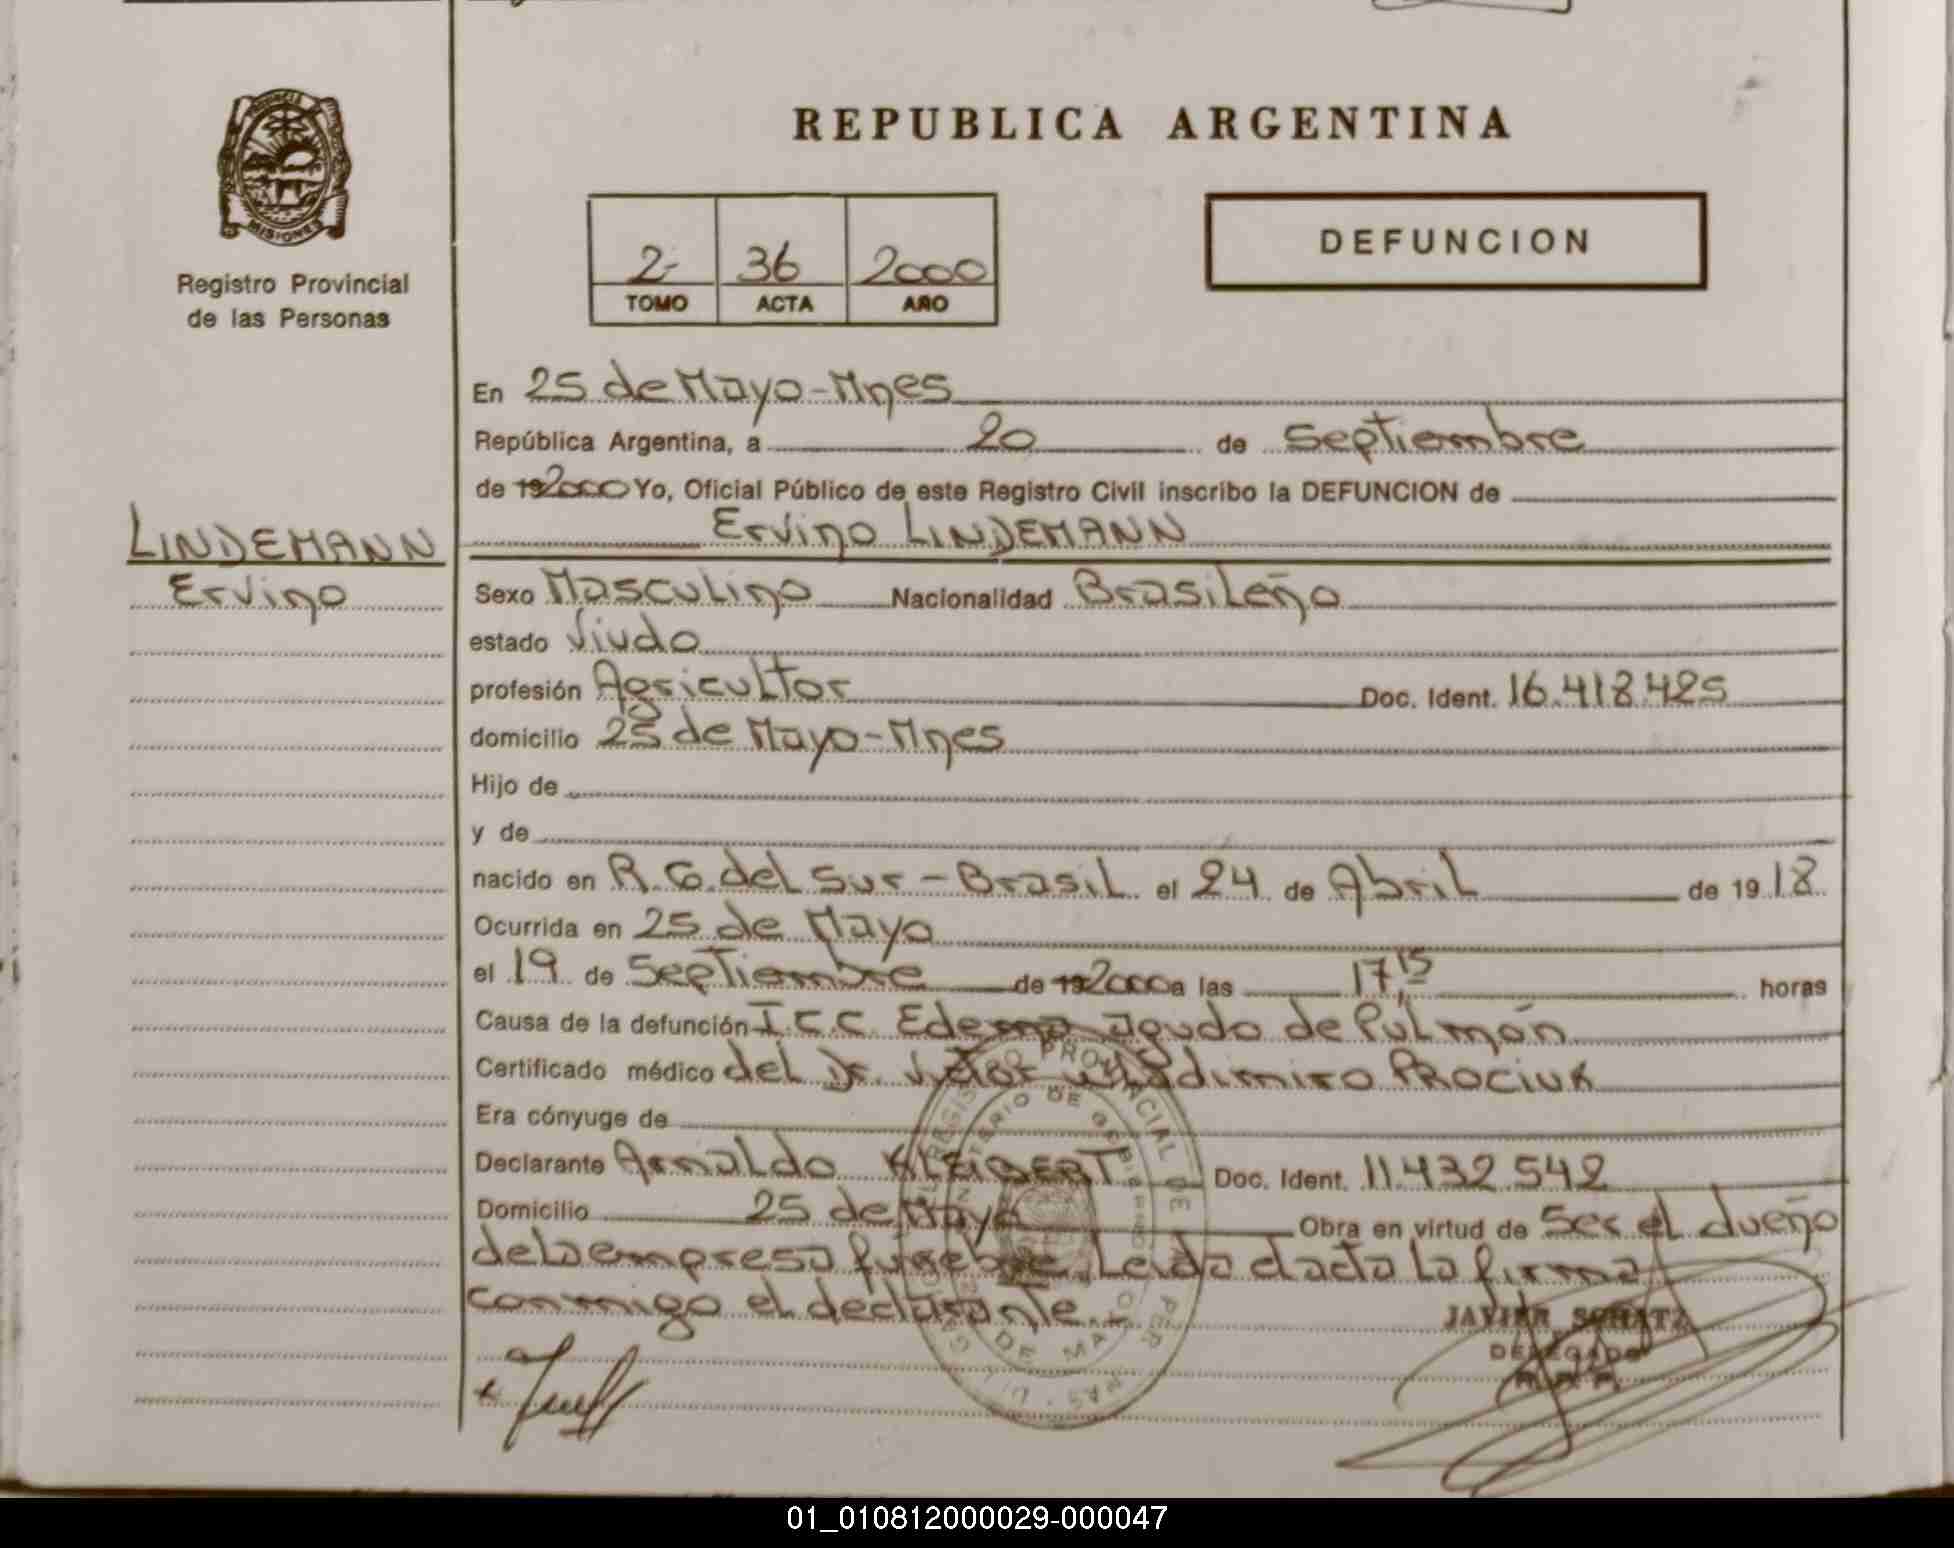 REPUBLICA ARGENTINA
PROVINCIA
MISIONES
Registro Provincial
de las Personas
2- 36 2000
TOMO ACTA AÑO
DEFUNCION
LINDEMANN
Ervino
En 25 de Mayo-Mnes
República Argentina, a 20 de Septiembre
de 192000 Yo, Oficial Público de este Registro Civil inscribo la DEFUNCION de
Ervino LINDEMANN
Sexo Masculino Nacionalidad Brasileño
estado Viudo
profesión Agricultor Doc. Ident. 16.418.425
domicilio 25 de Mayo-Mnes
Hijo de
y de
nacido en R.G. del Sur - Brasil el 24 de Abril de 1918
Ocurrida en 25 de Mayo
el 19 de Septiembre de 192000 a las 17,15 horas
Causa de la defunción I.C.C. Edema agudo de Pulmón
Certificado médico del Dr. Victor Wladimiro PROCIUK
Era cónyuge de
Declarante Arnaldo KLEIBERT Doc. Ident. 11.432.542
Domicilio 25 de Mayo Obra en virtud de Ser el dueño
de la empresa funebre. Leida el acta la firma
conmigo el declarante.
JAVIER SCHATZ
DELEGADO
01_010812000029-000047